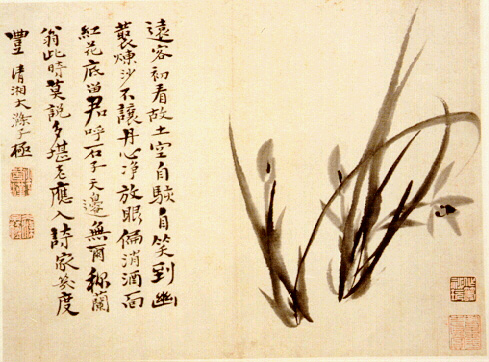 遠客初看故土空自駭自笑到幽
叢煉沙不讓丹心淨放眼偏消酒面
紅花底留君呼石子天邊無爾稱蘭
翁此時莫說多堪老應入詩家籙度
豐 清湘大滌子極